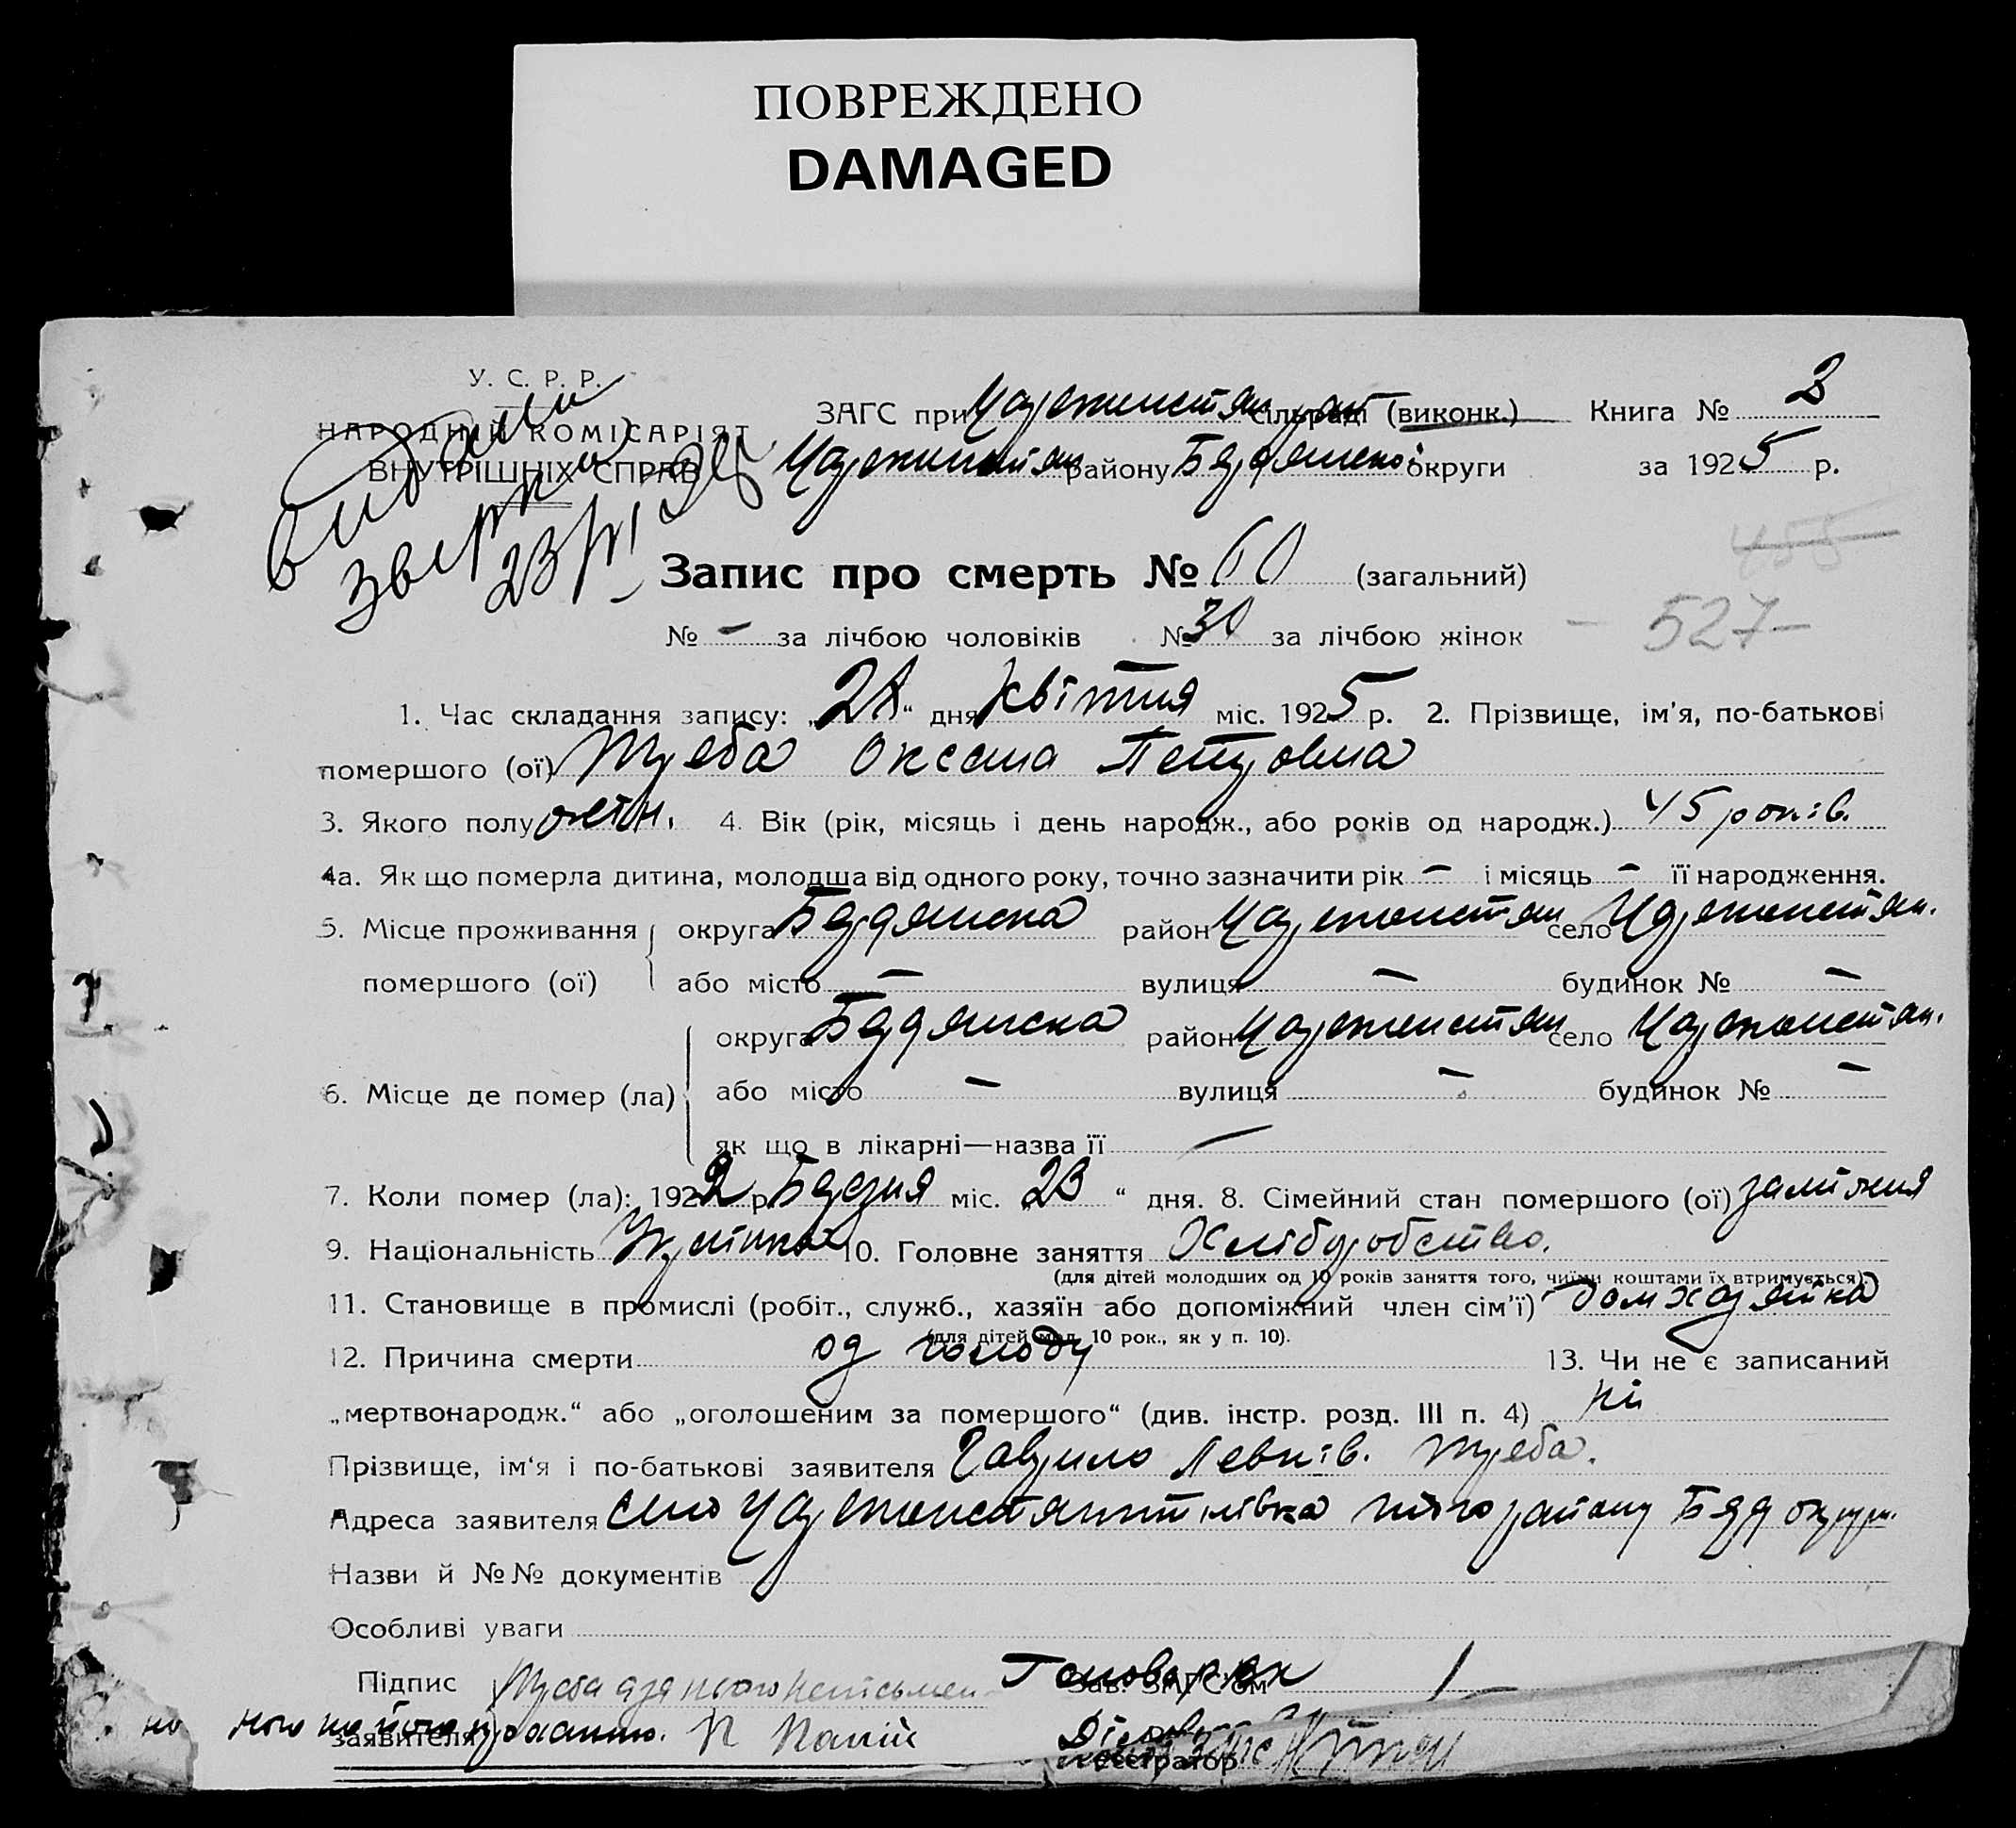 ПОВРЕЖДЕНО
DAMAGED
У. С. Р. Р.
НАРОДНІЙ КОМІСАРІЯТ
ВНУТРІШНІХ СПРАВ
ЗАГС при Цареконстян сільраді (виконк.) Книга № 2
Цареконстян району Бердянської округи за 1925 р.
видани
455
Запис про смерть № 60 (загальний)
№ – за лічбою чоловіків № 30 за лічбою жінок
– 527 –
1. Час складання запису: „28“ дня квітня міс. 1925 р. 2. Прізвище, ім'я, по-батькові
помершого (ої) Треба Оксана Петровна
3. Якого полу жін. 4. Вік (рік, місяць і день народж., або років од народж.) 45 років.
4а. Як що померла дитина, молодша від одного року, точно зазначити рік – і місяць – її народження.
5. Місце проживання округа Бердянска район Цареконстян село Цареконстян.
помершого (ої) або місто – вулиця – будинок № –
округа Бердянска район Цареконстян село Цареконстян.
6. Місце де помер (ла) або місто – вулиця – будинок № –
як що в лікарні—назва її –
7. Коли помер (ла): 1922 р. Грудня міс. „23“ дня. 8. Сімейний стан помершого (ої) заміжня
9. Національність Українка 10. Головне заняття Хліборобство.
(для дітей молодших од 10 років заняття того, чиїми коштами їх втримується).
11. Становище в промислі (робіт., служб., хазяїн або допоміжний член сім'ї) домхазяйка
(для дітей мол. 10 рок., як у п. 10).
12. Причина смерти од голоду 13. Чи не є записаний
„мертвонародж.“ або „оголошеним за помершого“ (див. інстр. розд. III п. 4) ні
Прізвище, ім'я і по-батькові заявителя Гаврило Левків. Треба.
Адреса заявителя село Цареконстянтинівка того району Берд округи.
Назви й №№ документів
Особливі уваги
Підпис Треба а за нього неписьмен-
заявителя ного на його проханню.
Зав. ЗАГС'ом
Реєстратор